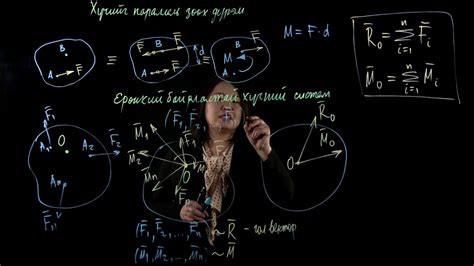 Хүчийг параллель зөөх дүрэм
B F̄ A
≡
B F̄ F̄ d A F̄
≡
B M F̄ A
M = F · d
R̄₀ = Σ F̄ᵢ n i=1
M̄₀ = Σ M̄ᵢ n i=1
Ерөнхий байрлалтай хүчний систем
F̄₁ A₁ O A₂ F̄₂ Aₙ F̄ₙ
M̄₁ M̄₂ M̄ₙ O
R̄₀ M̄₀ O
(F̄₁, F̄₂, ..., F̄ₙ) ~ R̄ - гол вектор
(M̄₁, M̄₂, ..., M̄ₙ) ~ M̄